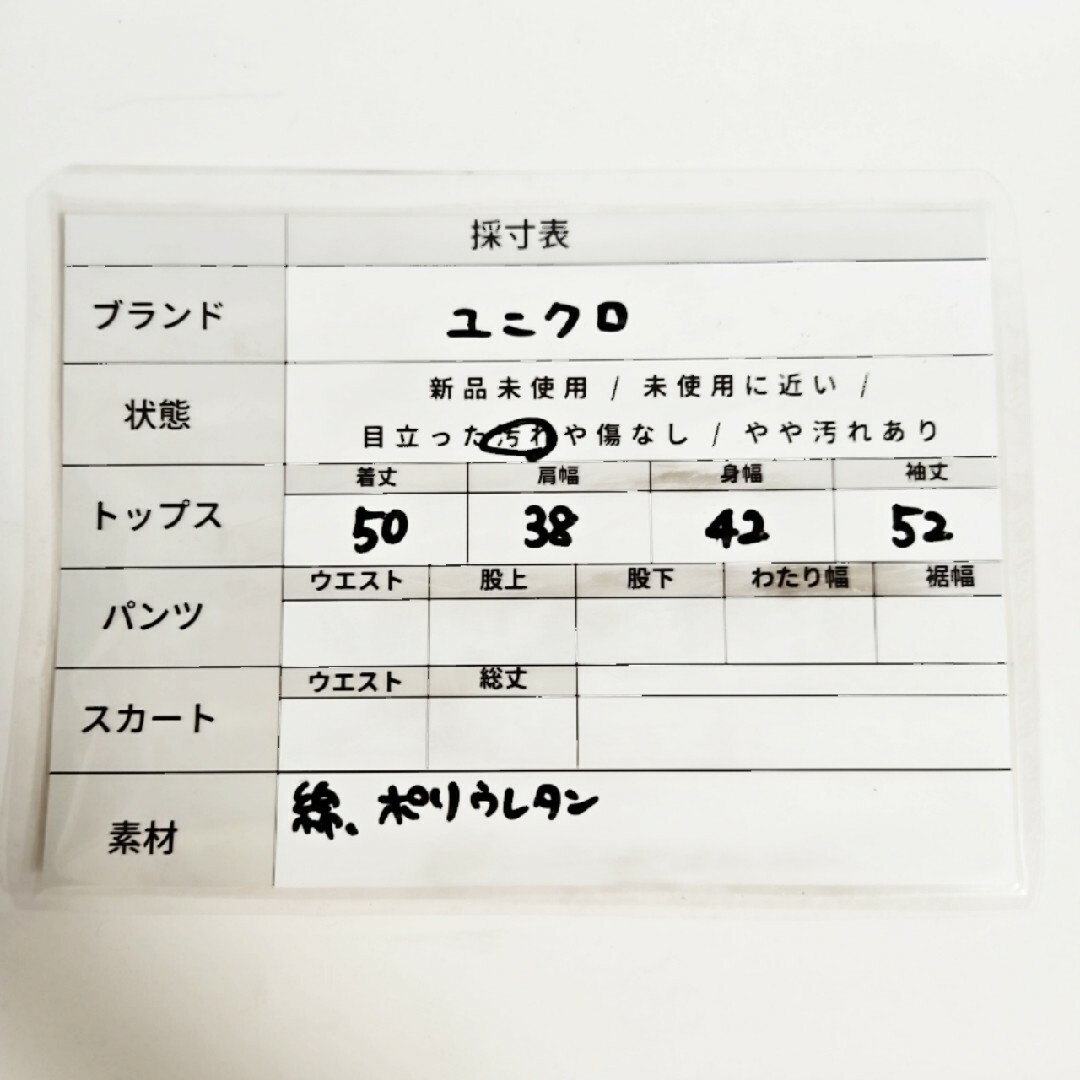 採寸表
ブランド ユニクロ
新品未使用 / 未使用に近い /
状態
目立った汚れや傷なし / やや汚れあり
着丈 肩幅 身幅 袖丈
トップス 50 38 42 52
ウエスト 股上 股下 わたり幅 裾幅
パンツ
ウエスト 総丈
スカート
綿、ポリウレタン
素材